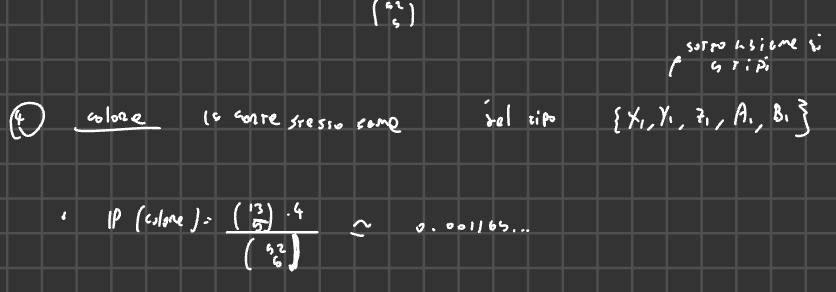 (52 5)
sottoinsieme di
5 tipi
④ colore 5 carte stesso seme del tipo {X₁, Y₁, Z₁, A₁, B₁}
• IP (colore) = (13 5) · 4 / (52 5) ≃ 0.001165...